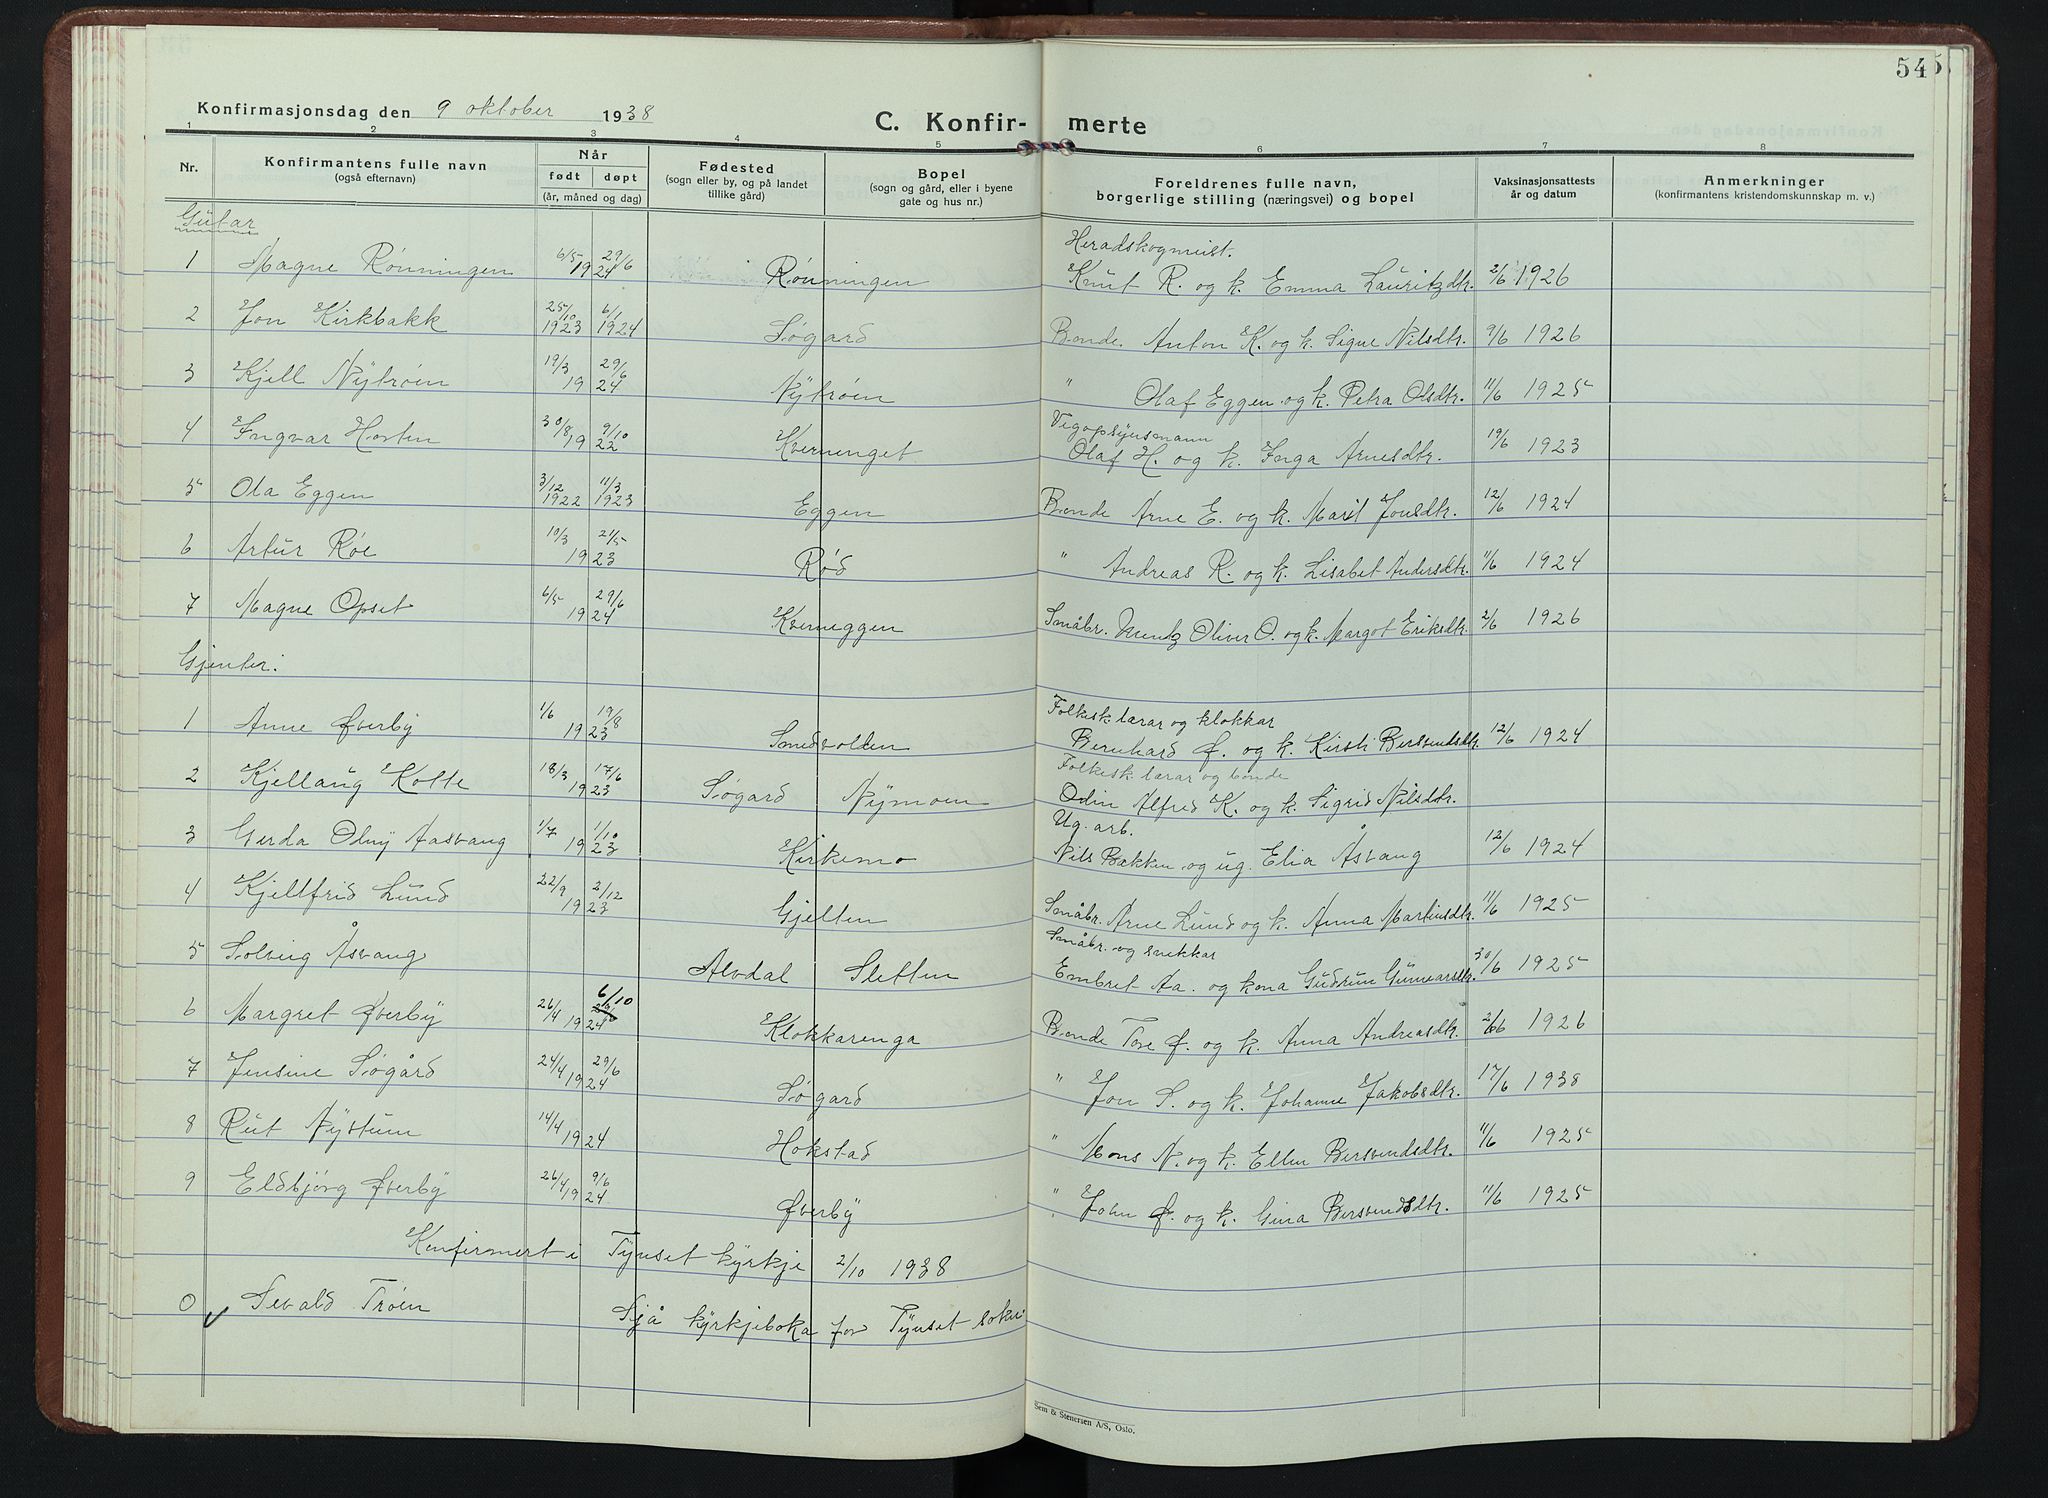 54
Konfirmasjonsdag den 9 oktober 1938
C. Konfir- merte
1 2 3 4 5 6 7 8
Nr. Konfirmantens fulle navn (også efternavn) Når født døpt (år, måned og dag) Fødested (sogn eller by, og på landet tillike gård) Bopel (sogn og gård, eller i byene gate og hus nr.) Foreldrenes fulle navn, borgerlige stilling (næringsvei) og bopel Vaksinasjonsattests år og datum Anmerkninger (konfirmantens kristendomskunnskap m. v.)
Gutar
1 Magne Rønningen 6/5 29/6 1924 Rønningen Heradskogmeist. Knut R. og k. Emma Lauritzdtr. 2/6 1926
2 Jon Kirkbakk 25/10 1923 6/1 1924 Søgard Bonde Anton K. og k. Signe Nilsdtr. 9/6 1926
3 Kjell Nytrøen 19/3 29/6 1924 Nytrøen " Olaf Eggen og k. Petra Olsdtr. 11/6 1925
4 Ingvar Horten 30/8 9/10 1922 Kvernenget Vegopsynsmann Olaf H. og k. Inga Arnesdtr. 19/6 1923
5 Ola Eggen 3/12 1922 11/3 1923 Eggen Bonde Arne E. og k. Marit Jonsdtr. 12/6 1924
6 Artur Røe 10/3 21/5 1923 Rød " Andreas R. og k. Lisabet Andersdtr. 11/6 1924
7 Magne Opset 6/5 29/6 1924 Kverneggen Småbr. Mentz Oliver O. og k. Margot Eriksdtr. 2/6 1926
Gjenter:
1 Anne Øverby 1/6 19/8 1923 Smedvolden Folkesk.lærar og klokkar Bernhard Ø. og k. Kirsti Bersvendsdtr. 12/6 1924
2 Kjellaug Kotte 18/3 17/6 1923 Søgard Nymoen Folkesk.lærar og bonde Odin Alfred K. og k. Sigrid Nilsdtr.
3 Gerda Odny Aasvang 1/7 1/10 1923 Kirkemo Ug. arb. Nils Bækken og ug. Elia Åsvang 12/6 1924
4 Kjellfrid Lund 22/9 2/12 1923 Gjelten Småbr. Arne Lund og k. Anna Martinsdtr. 11/6 1925
5 Solveig Åsvang Alvdal Sletten Småbr. og snekkar Embret Aa. og kona Gudrun Gunnarsdtr. 30/6 1925
6 Margret Øverby 26/4 6/10 1924 Klokkarenga Bonde Tore Ø. og k. Anna Andreasdtr. 2/6 1926
7 Jensine Søgård 24/4 29/6 1924 Søgard " Jon S. og k. Johanne Jakobsdtr. 17/6 1938
8 Rut Nystum 14/4 1924 Hokstad " Mons N. og k. Ellen Bersvendsdtr. 11/6 1925
9 Eldbjørg Øverby 26/4 9/6 1924 Øverby " John Ø. og k. Gina Bersvendsdtr. 11/6 1925
Konfirmert i Tynset kyrkje 2/10 1938
0 Sevald Trøen Sjå kyrkjeboka for Tynset sokn
Sem & Stenersen A/S, Oslo.